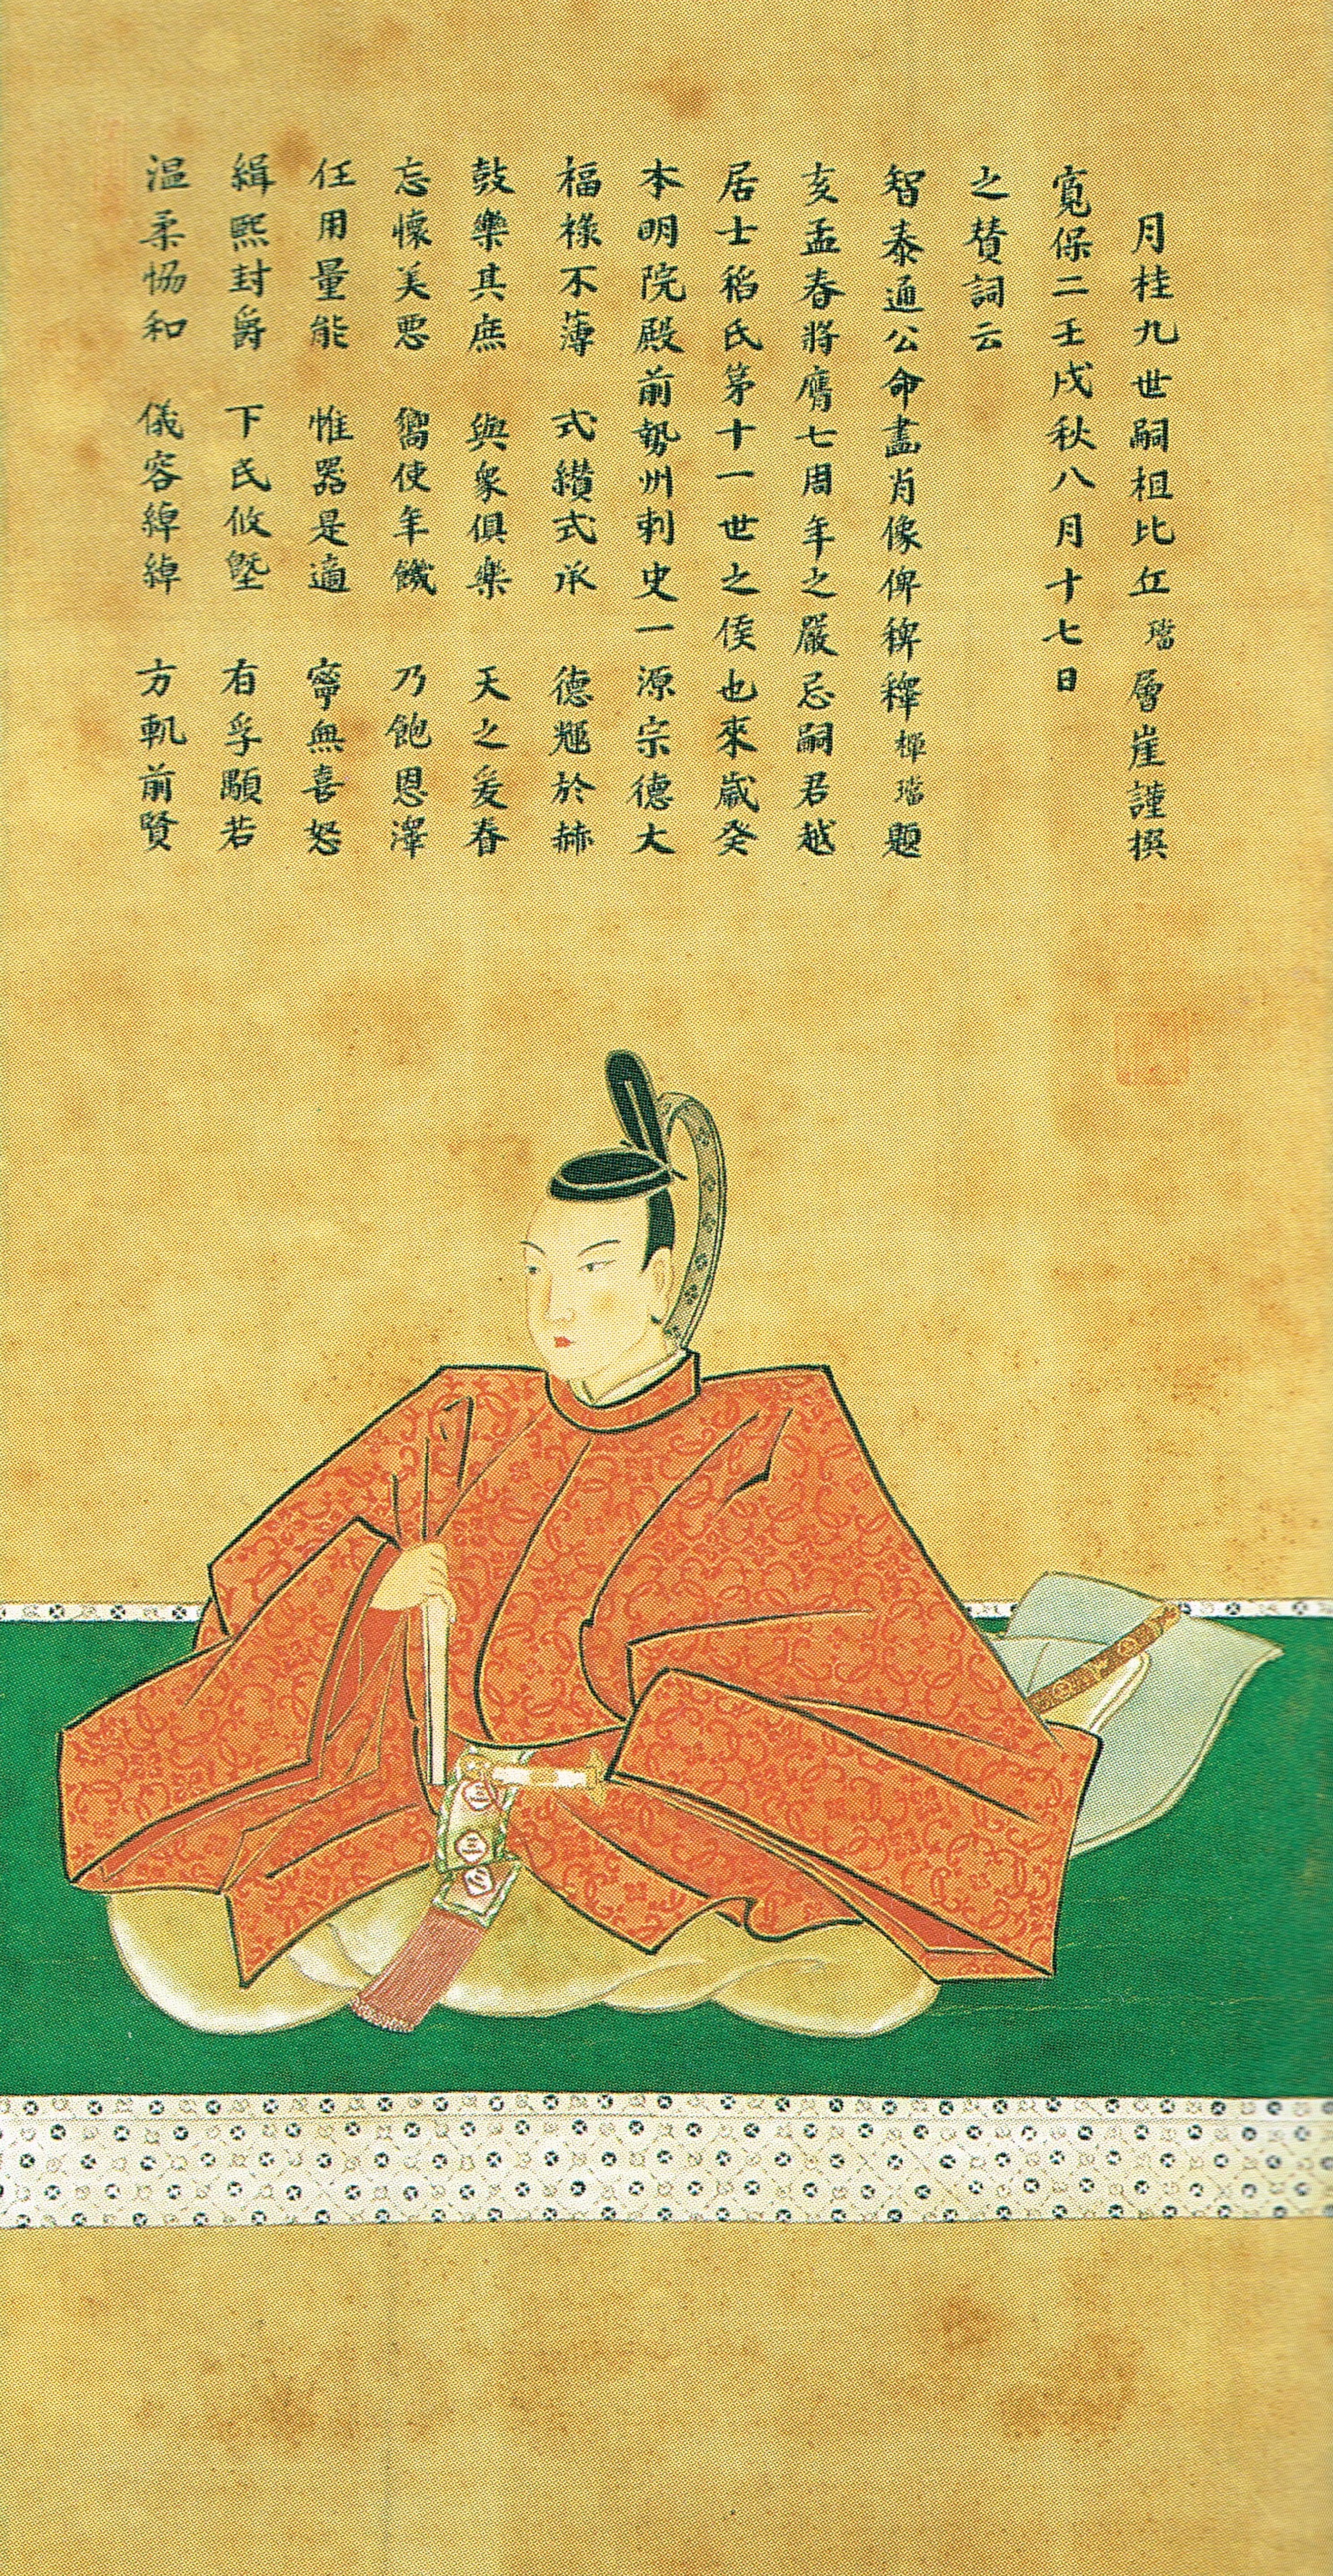 温柔恊和　儀容綽綽　方軌前賢
緝熙封爵　下民攸墍　有孚顒若
任用量能　惟器是適　寧無喜怒
忘懷美悪　嚮使年饑　乃飽恩澤
鼓樂其庶　與衆俱樂　天之爰眷
福祿不薄　式纉式承　德耀於赫
本明院殿前勢州刺史一源宗德大
居士稻氏第十一世之侯也來歲癸
亥孟春將膺七周年之嚴忌嗣君越
智泰通公命畫肖像俾稗璫題
之賛詞云
寬保二壬戌秋八月十七日
月桂九世嗣祖比丘璫層崖謹撰